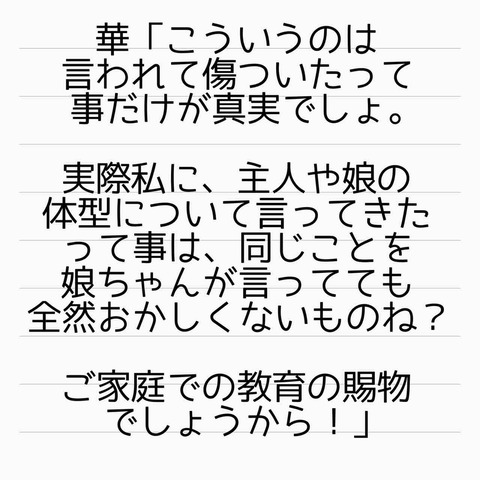 華「こういうのは
言われて傷ついたって
事だけが真実でしょ。
実際私に、主人や娘の
体型について言ってきた
って事は、同じことを
娘ちゃんが言ってても
全然おかしくないものね？
ご家庭での教育の賜物
でしょうから！」